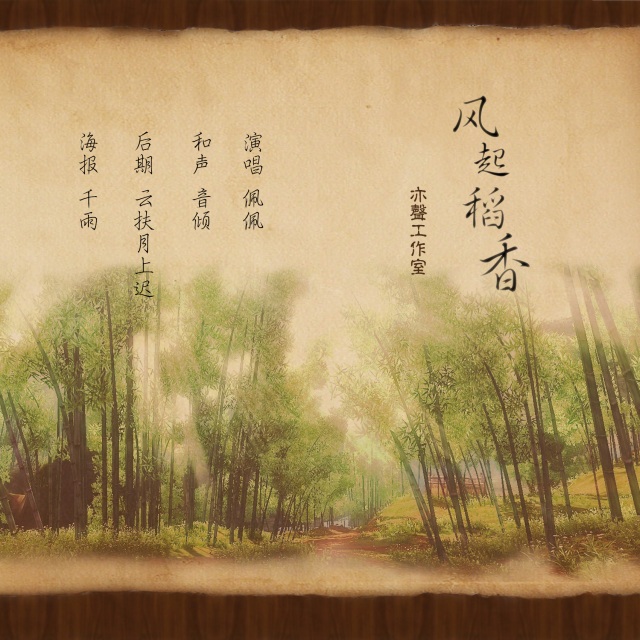 风起稻香
亦聲工作室
演唱 佩佩
和声 音倾
后期 云扶月上迟
海报 千雨